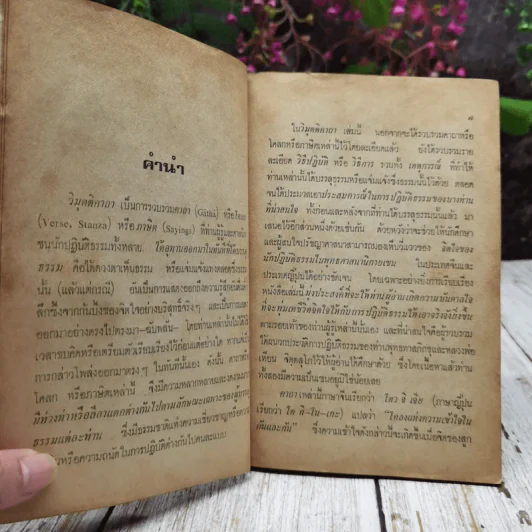 คำนำ
วิมุตติคาถา เป็นการรวบรวมคาถา (Gāthā) หรือโศลก
(Verse, Stanza) หรือภาษิต (Sayings) ที่ท่านผู้รู้และ
ชนนักปฏิบัติธรรมทั้งหลาย ได้อุทานออกมาในทันทีที่ได้บรรลุ
ธรรม คือได้ดวงตาเห็นธรรม หรือแจ่มแจ้งแทงตลอดซึ่งธรรม
นั้น (แล้วแต่กรณี) อันเป็นการแสดงถึงความรู้สึกอันลึก
ลึกซึ้งจากก้นบึ้งของจิตใจอย่างบริสุทธิ์จริงๆ และเป็นการ
ออกมาอย่างตรงไปตรงมา-ฉับพลัน- โดยท่านเหล่านั้นไม่ได้
เวลาขบคิดหรือเตรียมตัวเรียบเรียงไว้ก่อนแต่อย่างใด หากเป็น
การกล่าวโพล่งออกมาตรงๆ ในทันทีนั้นเอง ดังนั้น คาถา
โศลก หรือภาษิตเหล่านี้ จึงมีความหลากหลายและ
มีท่วงท่าหรือลีลาแตกต่างกันไปตามลักษณะเฉพาะของผู้บรรลุ
ธรรมแต่ละท่าน ซึ่งมีธรรมชาติแห่งความเชี่ยวชาญหรือความ
หรือความถนัดในการปฏิบัติต่างกันไปคนละแบบ
ในวิมุตติคาถา เล่มนี้ นอกจากจะได้รวบรวมคาถาหรือ
โศลกหรือภาษิตเหล่านี้ไว้โดยละเอียดแล้ว ยังได้รวบรวมราย
ละเอียด วิธีปฏิบัติ หรือ วิธีการ รวมทั้ง เหตุการณ์ ที่ทำให้
ท่านเหล่านั้นได้บรรลุธรรมหรือแจ่มแจ้งซึ่งธรรมนั้นไว้ด้วย ตลอด
จนได้ประมวลเอาประสบการณ์ในการปฏิบัติธรรมของบางท่าน
ที่น่าสนใจ ทั้งก่อนและหลังจากที่ท่านได้บรรลุธรรมนั้นแล้ว มา
เสนอไว้อีกส่วนหนึ่งด้วยเช่นกัน ด้วยหวังว่าจะช่วยให้นักศึกษา
และผู้สนใจปรัชญาศาสนาสามารถมองเห็นแววของ จิตใจของ
นักปฏิบัติธรรมในพุทธศาสนานิกายเซน ในประเทศจีนและ
ประเทศญี่ปุ่นได้อย่างชัดเจน โดยเฉพาะอย่างยิ่งการเรียบเรียง
หนังสือเล่มนี้ มุ่งประสงค์ที่จะให้ท่านผู้อ่านเกิดความบันดาลใจ
ที่จะทุ่มเทชีวิตจิตใจให้กับการปฏิบัติธรรมให้ได้อย่างจริงจังยิ่งขึ้น
ตามรอยเท้าของท่านผู้รู้เหล่านั้นเอง และที่น่าสนใจคือผู้รวบรวม
ได้ผนวกประวัติการปฏิบัติธรรมของท่านพุทธทาสภิกขุและหลวงพ่อ
เทียน จิตฺตสุโภไว้ให้ผู้อ่านได้ศึกษาด้วย ซึ่งโดยเนื้อหาแล้วท่าน
ทั้งสองมีความเป็นเซนอยู่มิใช่น้อยเลย
คาถาเหล่านี้ภาษาจีนเรียกว่า โถว จี เจีย (ภาษาญี่ปุ่น
เรียกว่า โต คิ-โน-เกะ) แปลว่า “โคลงแห่งความเข้าใจใน
กันและกัน” ซึ่งความเข้าใจดังกล่าวนี้จะเกิดขึ้นเมื่อจิตของลูก